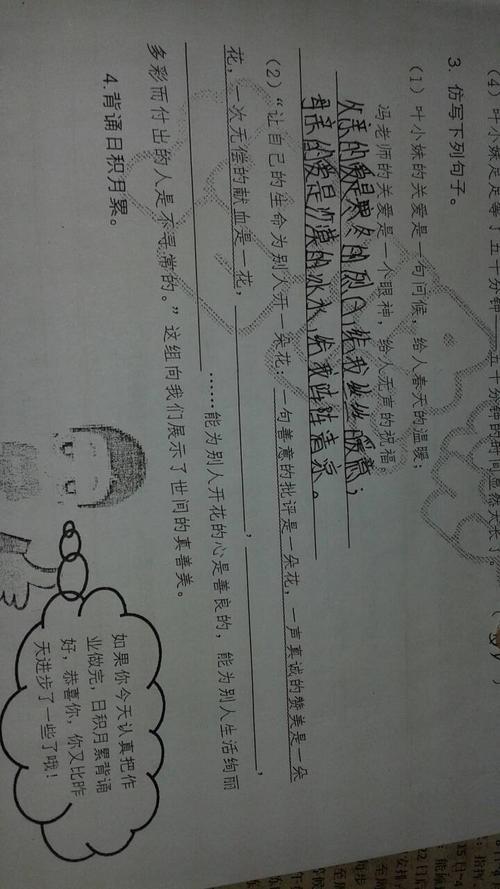 (4)叶小妹足足等了五十分钟
3. 仿写下列句子。
(1)叶小妹的关爱是一句问候，给人春天的温暖；
冯老师的关爱是一个眼神，给人无声的祝福。
父亲的爱是寒冬的烈日，给我丝丝暖意；
母亲的爱是炎热的冰水，给我阵阵清凉。
(2)“让自己的生命为别人开一朵花：一句善意的批评是一朵花，一声真诚的赞美是一朵
花，一次无偿的献血是一花，，，
……能为别人开花的心是善良的，能为别人生活绚丽
多彩而付出的人是不寻常的。”这组向我们展示了世间的真善美。
4. 背诵日积月累。
如果你今天认真把作
业做完，日积月累背诵
好，恭喜你，你又比昨
天进步了一些了哦！